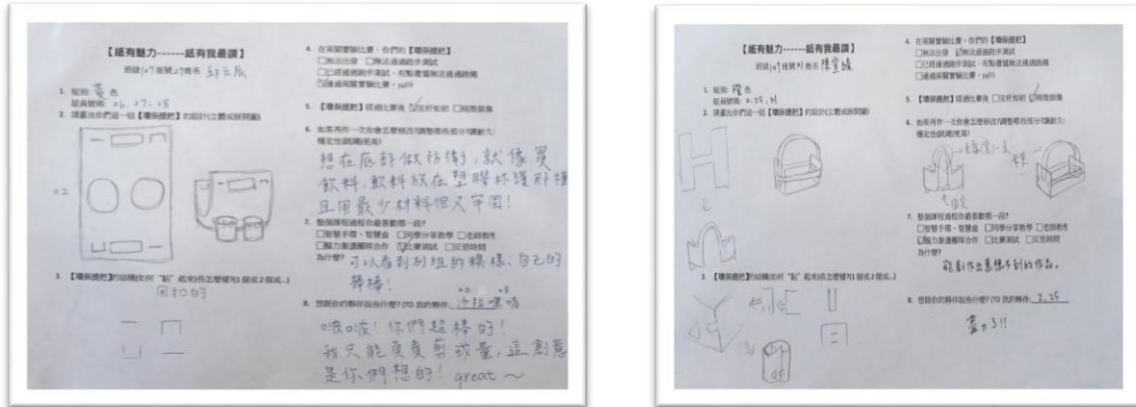 【紙有魅力------紙有我最讚】
班級107座號27姓名
1. 組別:黃色
組員號碼: 26.27.28
2. 請畫出你們這一組【環保提把】的設計(立體或展開圖)
×2
3. 【環保提把】的結構(如何"黏"起來)長怎麼樣?(1個或2個或...)
用扣的
4. 在兩關實驗比賽,你們的【環保提把】
□無法出發 □無法通過跑步測試
□已經通過跑步測試,有點遺憾無法通過跳繩
☑通過兩關實驗比賽,ya!!!
5. 【環保提把】經過比賽後 ☑完好如初 □稍微損傷
6. 如果再作一次你會怎麼修改?調整哪些部分?讓耐久/
穩定性(跳繩)更高!
想在底部做防衛,就像買
飲料,飲料放在塑膠杯讓那種
且用最少材料但又牢固!
7. 整個課程過程你最喜歡哪一段?
□智慧手環、智慧盒 □同學分享教學 □老師教
□腦力激盪團隊合作 ☑比賽測試 □反思時間
為什麼? 可以看到別組的模樣、自己的
棒棒!
8. 想跟你的夥伴說些什麼?(TO 我的夥伴:沙拉嘿喲
啵啵!你們超棒的!
我只能負責剪或量,這創意
是你們想的! great~
【紙有魅力------紙有我最讚】
班級109座號31姓名陳
1. 組別:橙色
組員號碼: 2.25.31
2. 請畫出你們這一組【環保提把】的設計(立體或展開圖)
3. 【環保提把】的結構(如何"黏"起來)長怎麼樣?(1個或2個或...)
4. 在兩關實驗比賽,你們的【環保提把】
□無法出發 ☑無法通過跑步測試
□已經通過跑步測試,有點遺憾無法通過跳繩
□通過兩關實驗比賽,ya!!!
5. 【環保提把】經過比賽後 □完好如初 ☑稍微損傷
6. 如果再作一次你會怎麼修改?調整哪些部分?讓耐久/
穩定性(跳繩)更高!
7. 整個課程過程你最喜歡哪一段?
□智慧手環、智慧盒 □同學分享教學 □老師教
☑腦力激盪團隊合作 □比賽測試 □反思時間
為什麼?
能創作出意想不到的作品。
8. 想跟你的夥伴說些什麼?(TO 我的夥伴: 2.25
盡力了!!